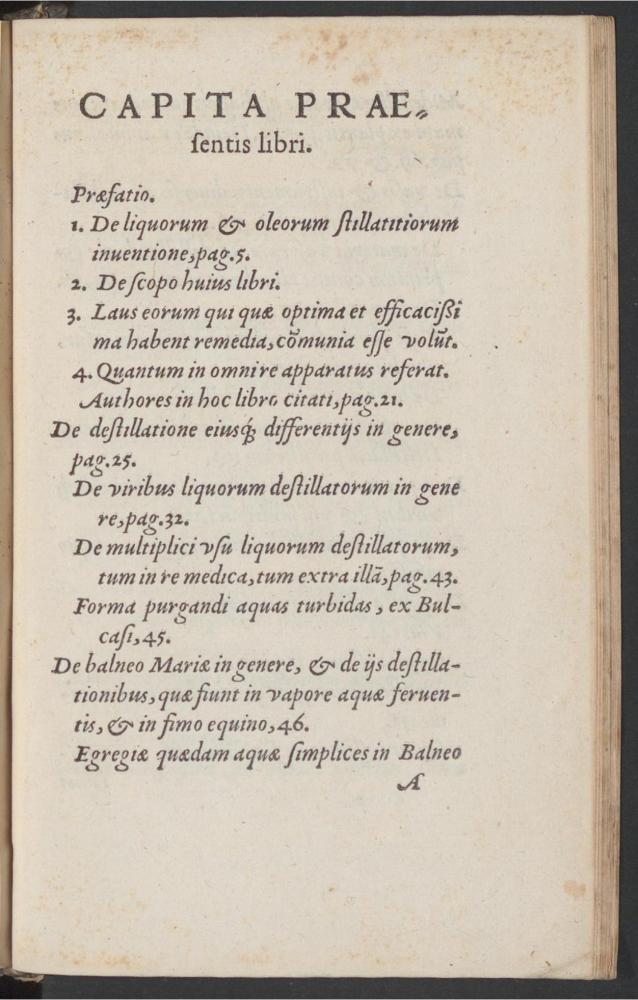 CAPITA PRAE⸗
ſentis libri.
Præfatio.
1. De liquorum & oleorum ſtillatitiorum
inuentione, pag.5.
2. De ſcopo huius libri.
3. Laus eorum qui quæ optima et efficaciſsi
ma habent remedia, cõmunia eſſe volũt.
4. Quantum in omni re apparatus referat.
Authores in hoc libro citati, pag.21.
De deſtillatione eiusq́; differentijs in genere,
pag.25.
De viribus liquorum deſtillatorum in gene
re, pag.32.
De multiplici vſu liquorum deſtillatorum,
tum in re medica, tum extra illã, pag.43.
Forma purgandi aquas turbidas, ex Bul-
caſi, 45.
De balneo Mariæ in genere, & de ijs deſtilla-
tionibus, quæ fiunt in vapore aquæ feruen-
tis, & in fimo equino, 46.
Egregiæ quædam aquæ ſimplices in Balneo
A